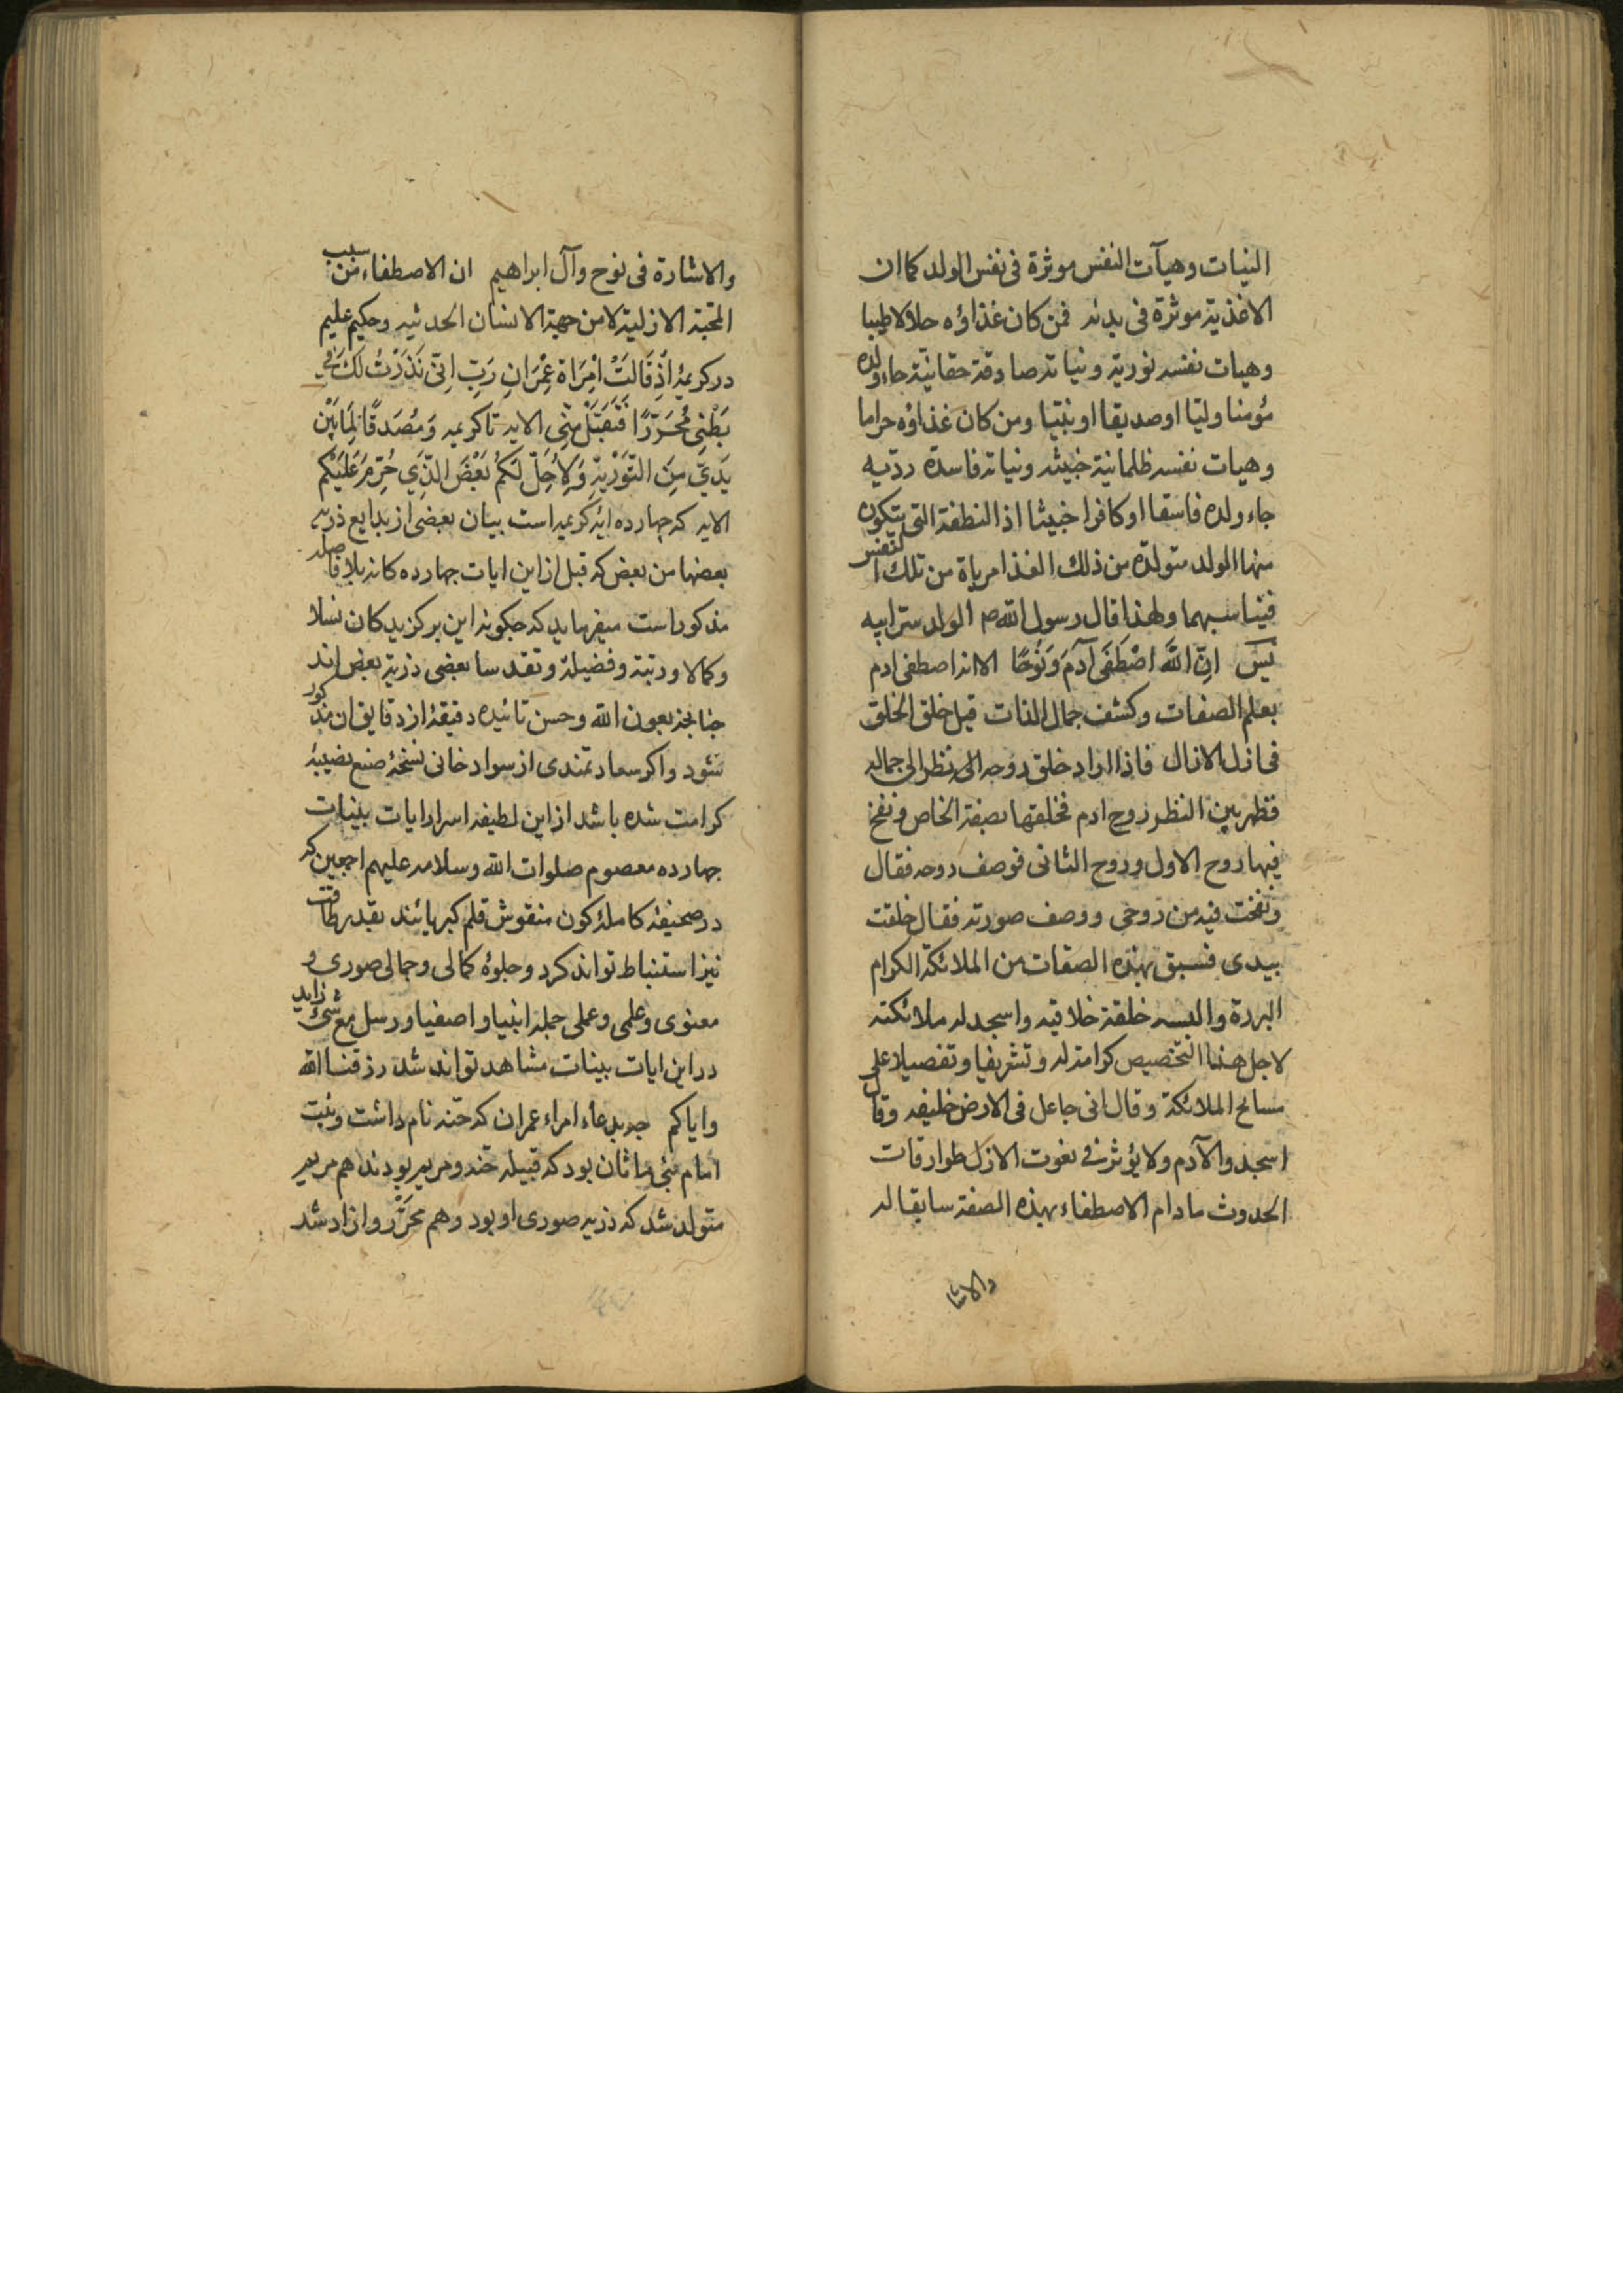 النیات وهیآت النفس موثرة فی نفس الولد کما ان
الاغذیة موثرة فی بدنه فمن کان غذاؤه حلالا طیبا
وهیات نفسه نوریة ونیاته صادقة حقانیّة جاء ولده
مؤمنا ولیّا او صدیقا او نبیّا ومن کان غذاؤه حراما
وهیات نفسه ظلمانیة خبیثه ونیاته فاسدة ردّیه
جاء ولده فاسقا او کافرا خبیثا اذ النطفة التی یتکون
منها الولد متولدة من ذلک الغذا مرباة من تلک النفس
فیناسبهما ولهذا قال رسول الله ص الولد سرّ ابیه
یس انّ الله اصْطَفَی آدَمَ وَنُوحًا الا انه اصطفی ادم
بعلم الصفات وکشف جمال الذات قبل خلق الخلق
فی ازل الازال فاذا اراد خلق روحه الی نظر الی جماله
فظهر بین النظر روح ادم فخلقها بصفة الخاص ونفخ
فیها روح الاول وروح الثانی فوصف روحه فقال
ونفخت فیه من روحی ووصف صورته فقال خلقت
بیدی فسبق بهذه الصفات من الملائکة الکرام
البررة والبسه خلقة خلاقیه واسجد له ملائکته
لاجل هذا التخصیص کرامة له وتشریفا وتفضیلا علی
مسابح الملائکة وقال انی جاعل فی الارض خلیفه وقال
اسجدوا لآدم ولا یؤثر فی نعوت الازل طوارقات
الحدوث مادام الاصطفاء بهذه الصفة سابقا له
والاشا
والاشارة فی نوح وآل ابراهیم ان الاصطفاء من سبب
المحبّة الازلیة لا من جهة الانسان الحدثیه وحکیم علیم
در کریمهٔ اِذْ قَالَتْ امْرَاَة عِمْرَانِ رَبّ اِنّی نَذَرْتُ لَکَ مَا فِی
بَطْنِی مُحَرّرًا فَتَقَبَّلْ مِنّی الایه تا کریمه وَمُصَدّقًا لِمَا بَیْن
یَدَیّ مِنَ التّوْریةِ وَلِاُحِلّ لَکُم بَعْضَ الّذِی حُرّمَ عَلَیْکُم
الایه که چهارده ایه کریمه است بیان بعضی از بدایع ذریه
بعضها من بعض که قبل از این ایات چهارده کانه بلا فاصله
مذکور است میفرماید که چکونه این برکزیدکان نسلا
وکمالا ورتبة وفضیلة وتقدسا بعضی ذریة بعض اند
چنانچه بعون الله وحسن تائیده دقیقهٔ از دقایق ان مذکور
شود واکر سعادتمندی از سواد خانی نسخهٔ صنع نصیبهٔ
کرامت شده باشد از این لطیفه اسرار ایات بینات
چهارده معصوم صلوات الله وسلامه علیهم اجمعین که
در صحیفهٔ کاملهٔ کون منقوش قلم کبریائیند بقدر طاقت
نیز استنباط تواند کرد وجلوهٔ کمالی وجمالی صوری و
معنوی وعلمی وعملی جمله انبیا و اصفیا و رسل مع شئ زاید
در این ایات بینات مشاهد تواند شد رزقنا الله
وایاکم چو بدعاء امراء عمران که حنّه نام داشت وبنت
امام بنی ماثان بود که قبیله حنه ومریم بودند هم مریم
متولد شد که ذریه صوری او بود وهم محرّر وازاد شد